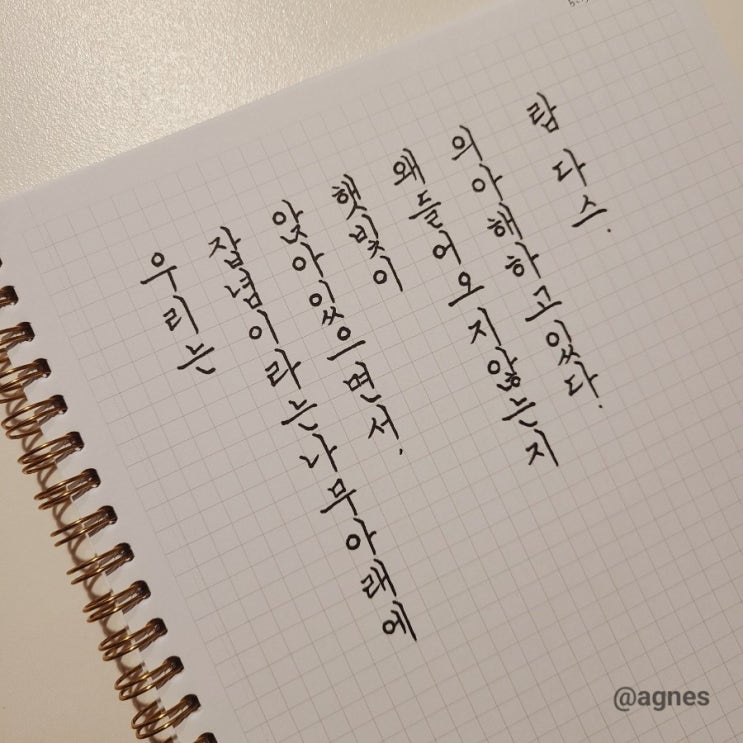 우리는
잡념이라는나무아래에
앉아있으면서,
햇빛이
왜들어오지않는지
의아해하고있다.
람다스.
@agnes